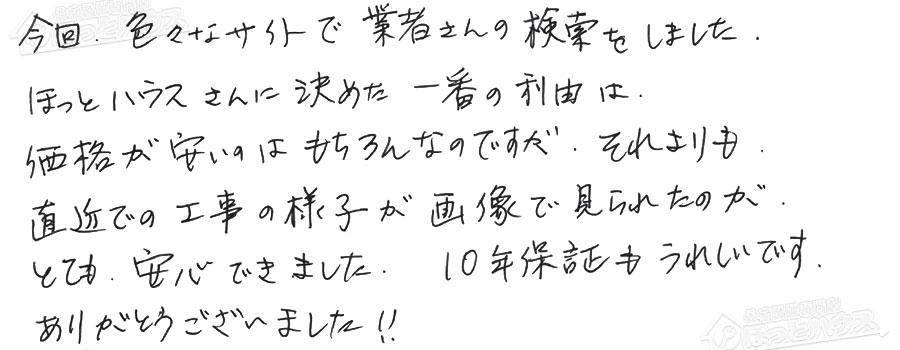 今回、色々なサイトで業者さんの検索をしました。
ほっとハウスさんに決めた一番の利由は、
価格が安いのはもちろんなのですが、それよりも、
直近での工事の様子が画像で見られたのが、
とても、安心できました。 10年保証もうれしいです。
ありがとうございました!!
ほっとハウス